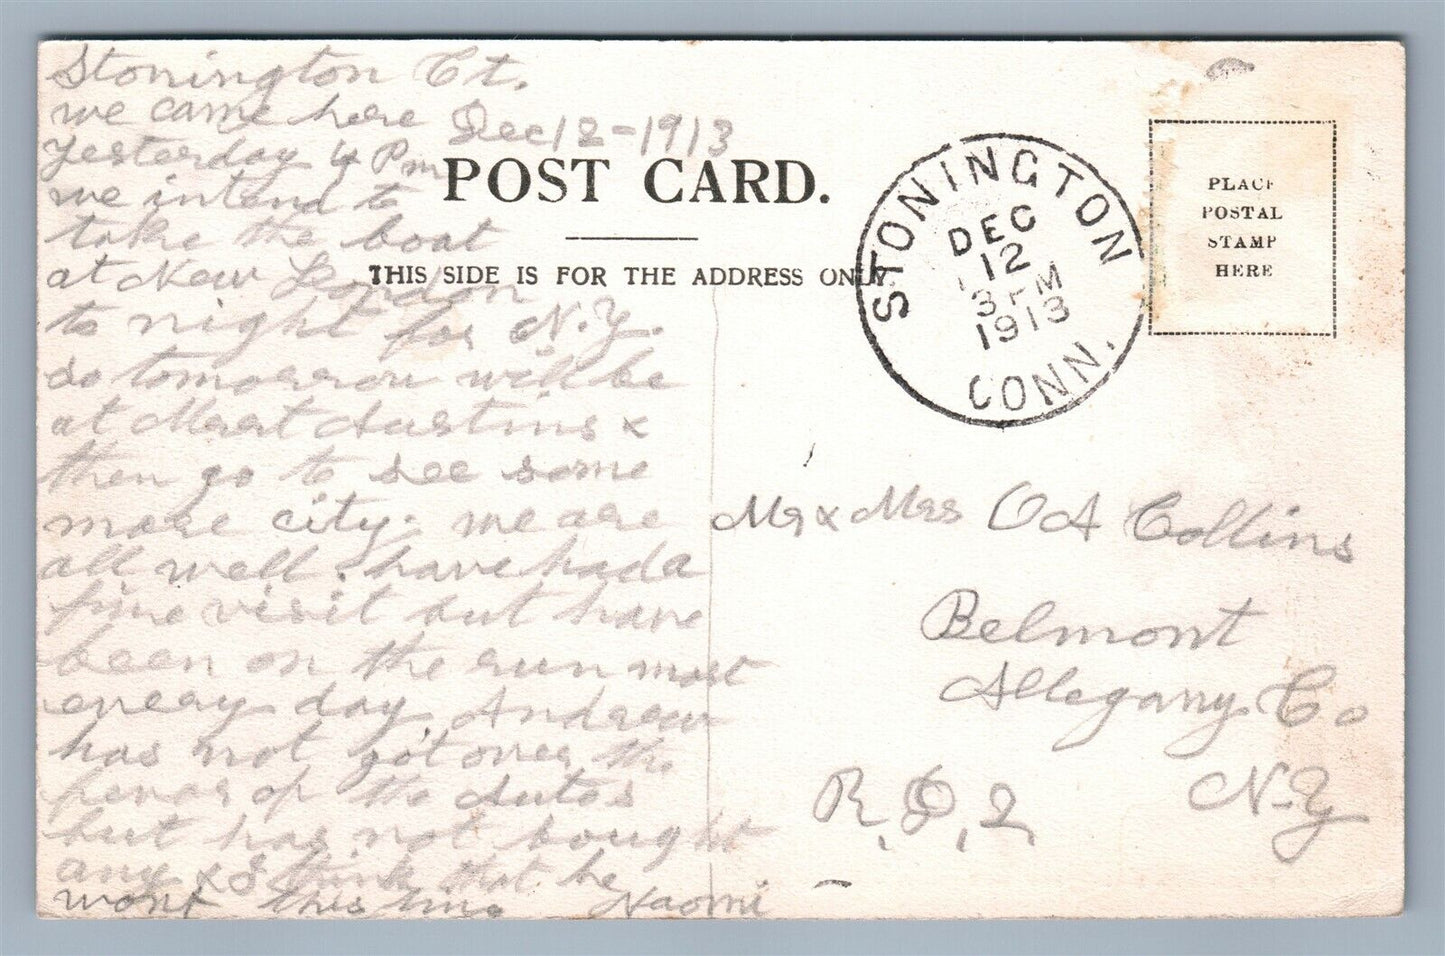 Stonington Ct.
we came here Dec 12-1913
yesterday 4 Pm
we intend to
take the boat
at New London
to night for N.Y.
so tomorrow will be
at Mert Austins &
then go to see some
more city. we are
all well. have had a
fine visit but have
been on the run most
every day. Andrew
has not got over the
fever of the Autos
but has not bought
any & I think that he
wont this time Naomi
POST CARD.
THIS SIDE IS FOR THE ADDRESS ONLY.
STONINGTON
DEC
12
3 PM
1913
CONN.
PLACE
POSTAL
STAMP
HERE
Mr & Mrs O A Collins
Belmont
Allegany Co
N-Y
R.D.2